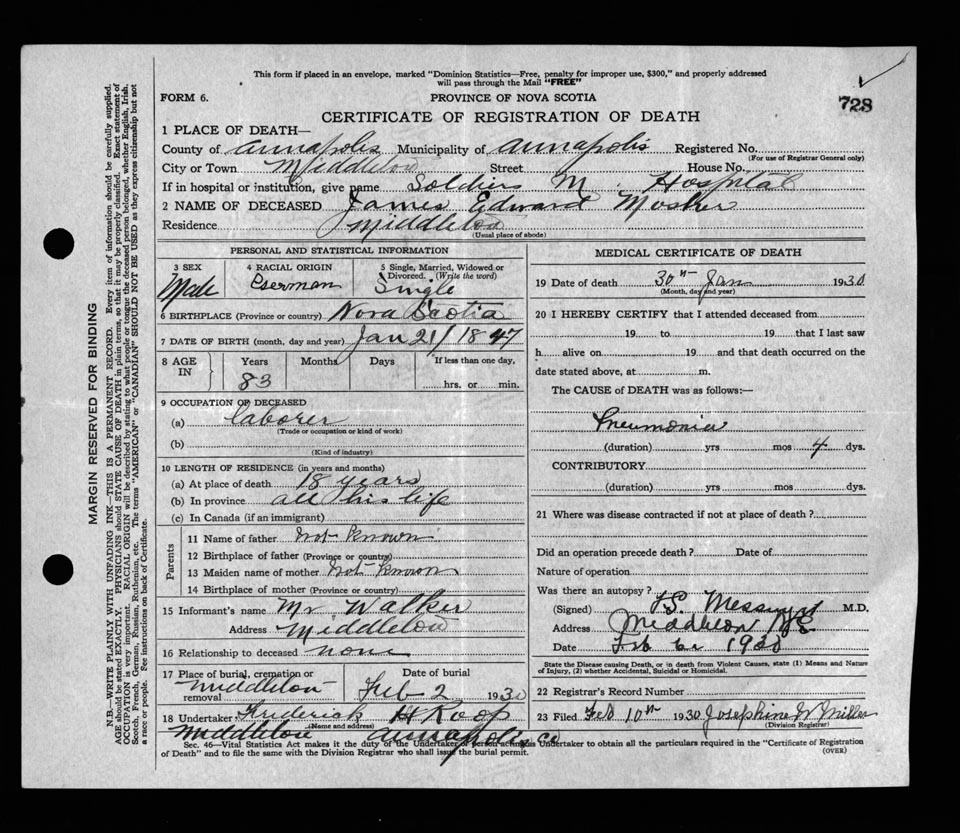 This form if placed in an envelope, marked "Dominion Statistics—Free, penalty for improper use, $300," and properly addressed
will pass through the Mail "FREE"
FORM 6.
PROVINCE OF NOVA SCOTIA
728
CERTIFICATE OF REGISTRATION OF DEATH
1 PLACE OF DEATH—
County of Annapolis Municipality of Annapolis Registered No.
(For use of Registrar General only)
City or Town Middleton Street House No.
If in hospital or institution, give name Soldiers M. Hospital
2 NAME OF DECEASED James Edward Mosher
Residence Middleton
(Usual place of abode)
PERSONAL AND STATISTICAL INFORMATION
3 SEX Male
4 RACIAL ORIGIN German
5 Single, Married, Widowed or
Divorced. (Write the word)
Single
6 BIRTHPLACE (Province or country) Nova Scotia
7 DATE OF BIRTH (month, day and year) Jan 21/1847
8 AGE IN
Years 83
Months
Days
If less than one day,
hrs. or min.
9 OCCUPATION OF DECEASED
(a) laborer
(Trade or occupation or kind of work)
(b)
(Kind of industry)
10 LENGTH OF RESIDENCE (in years and months)
(a) At place of death 18 years
(b) In province all his life
(c) In Canada (if an immigrant)
Parents
11 Name of father not known
12 Birthplace of father (Province or country)
13 Maiden name of mother not known
14 Birthplace of mother (Province or country)
15 Informant's name Mr Walker
Address Middleton
16 Relationship to deceased none
17 Place of burial, cremation or
removal Middleton
Date of burial
Feb 2 1930
18 Undertaker Frederick H Roop
(Name and address)
Middleton Annapolis Co
MEDICAL CERTIFICATE OF DEATH
19 Date of death 30th Jan 1930
(Month, day and year)
20 I HEREBY CERTIFY that I attended deceased from
19 to 19 that I last saw
h alive on 19 and that death occurred on the
date stated above, at m.
The CAUSE of DEATH was as follows:—
Pneumonia
(duration) yrs mos 4 dys.
CONTRIBUTORY
(duration) yrs mos dys.
21 Where was disease contracted if not at place of death?
Did an operation precede death? Date of
Nature of operation
Was there an autopsy?
(Signed) Messenger M.D.
Address Middleton NS
Date Feb 1930
State the Disease causing Death, or in death from Violent Causes, state (1) Means and Nature
of Injury, (2) whether Accidental, Suicidal or Homicidal.
22 Registrar's Record Number
23 Filed Feb 10th 1930 Josephine W Miller
(Division Registrar)
Sec. 46—Vital Statistics Act makes it the duty of the Undertaker or person acting as Undertaker to obtain all the particulars required in the "Certificate of Registration
of Death" and to file the same with the Division Registrar who shall issue the burial permit.
(OVER)
MARGIN RESERVED FOR BINDING
N.B.—WRITE PLAINLY WITH UNFADING INK—THIS IS A PERMANENT RECORD. Every item of information should be carefully supplied.
AGE should be stated EXACTLY. PHYSICIANS should STATE CAUSE OF DEATH in plain terms, so that it may be properly classified. Exact statement of
OCCUPATION is very important. RACIAL ORIGIN will be described by stating to what people or tongue the deceased person belonged, whether English, Irish,
Scotch, French, German, Russian, Ruthenian, etc. The terms "AMERICAN" or "CANADIAN" SHOULD NOT BE USED as they express citizenship but not
a race or people. See instructions on back of Certificate.